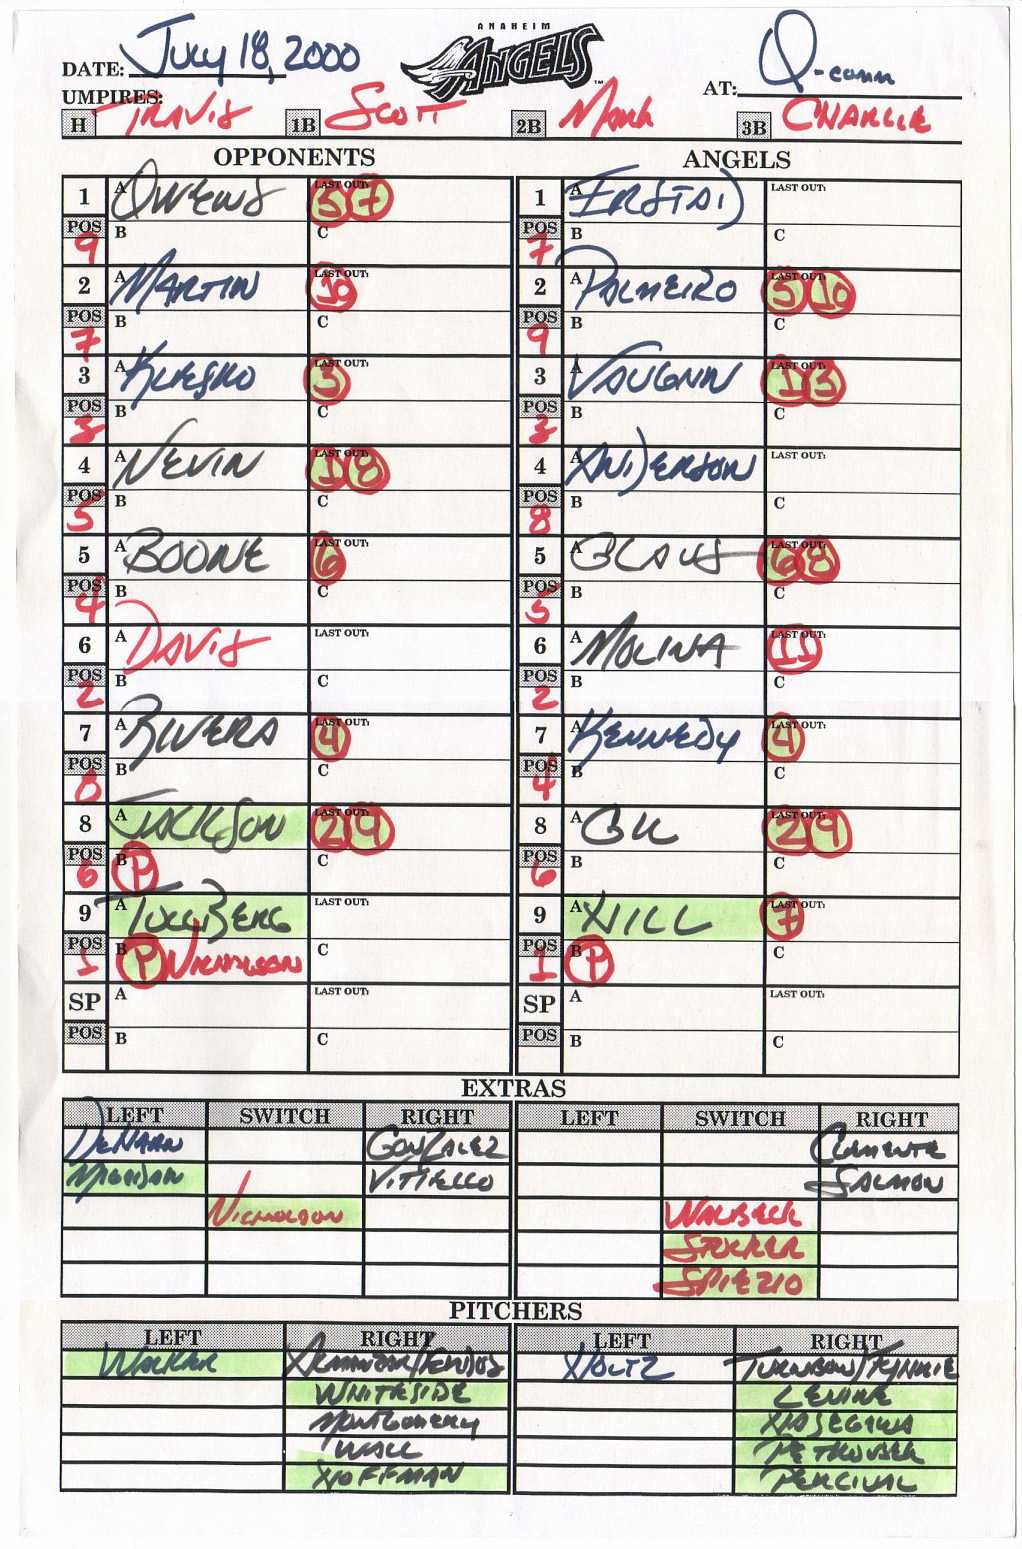 ANAHEIM
ANGELS
DATE: July 18, 2000
AT: Q-comm
UMPIRES:
H TRAVIS 1B SCOTT 2B Mark 3B CHARLIE
OPPONENTS ANGELS
1 A OWENS LAST OUT: 5 7 1 A ERSTAD LAST OUT:
POS 9 B C POS 7 B C
2 A MARTIN LAST OUT: 10 2 A PALMEIRO LAST OUT: 5 10
POS 7 B C POS 9 B C
3 A KLESKO LAST OUT: 3 3 A VAUGHN LAST OUT: 1 3
POS 3 B C POS 3 B C
4 A NEVIN LAST OUT: 1 8 4 A ANDERSON LAST OUT:
POS 5 B C POS 8 B C
5 A BOONE LAST OUT: 6 5 A GLAUS LAST OUT: 6 8
POS 4 B C POS 5 B C
6 A DAVIS LAST OUT: 6 A MOLINA LAST OUT: 11
POS 2 B C POS 2 B C
7 A RIVERA LAST OUT: 4 7 A KENNEDY LAST OUT: 4
POS 8 B C POS 4 B C
8 A JACKSON LAST OUT: 2 9 8 A GIL LAST OUT: 2 9
POS 6 B P C POS 6 B C
9 A TOLLBERG LAST OUT: 9 A HILL LAST OUT: 7
POS 1 B P NICHOLSON C POS 1 B P C
SP A LAST OUT: SP A LAST OUT:
POS B C POS B C
EXTRAS
LEFT SWITCH RIGHT LEFT SWITCH RIGHT
DeHAAN GONZALEZ CLEMENTE
MAGADAN VITIELLO SALMON
NICHOLSON WALBECK
STOCKER
SPIEZIO
PITCHERS
LEFT RIGHT LEFT RIGHT
WALKER HOLTZ
WHITESIDE LEVINE
MONTGOMERY HASEGAWA
WALL PETKOVSEK
HOFFMAN PERCIVAL